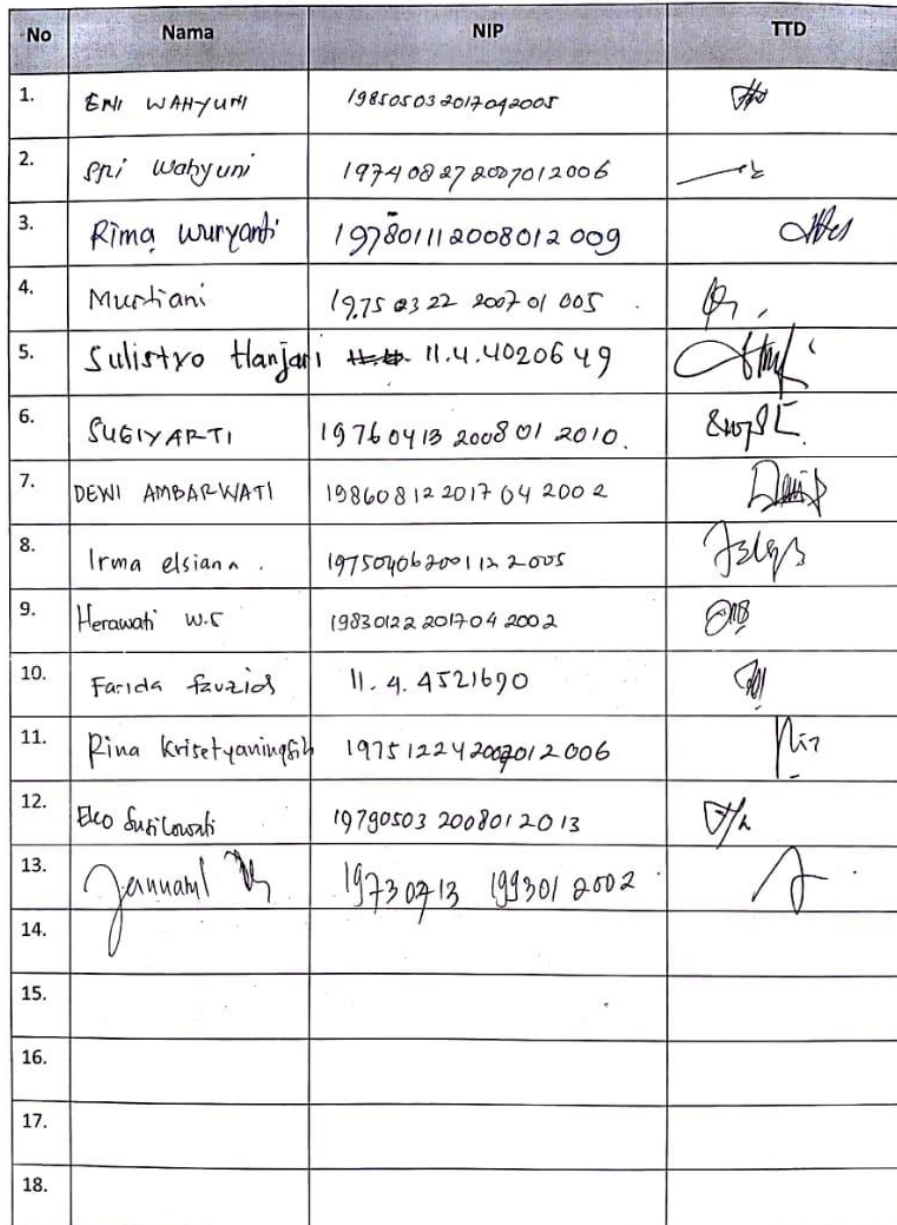 No Nama NIP TTD
1. ENI WAHYUNI 198505032017042005
2. Sri Wahyuni 197408272007012006
3. Rima Wuryanti 197801112008012009
4. Murtiani 19750322 2007 01 005
5. Sulistyo Hanjari 11.4.4020649
6. SUGIYARTI 19760413 2008 01 2010.
7. DEWI AMBARWATI 19860812 2017 04 2002
8. Irma elsiana. 197504062001122005
9. Herawati W.S 19830122 201704 2002
10. Farida fauzias 11.4.4521690
11. Rina Krisetyaningsih 197512242007012006
12. Eko Susilowati 19790503 2008012013
13. 19730713 199301 2002
14.
15.
16.
17.
18.